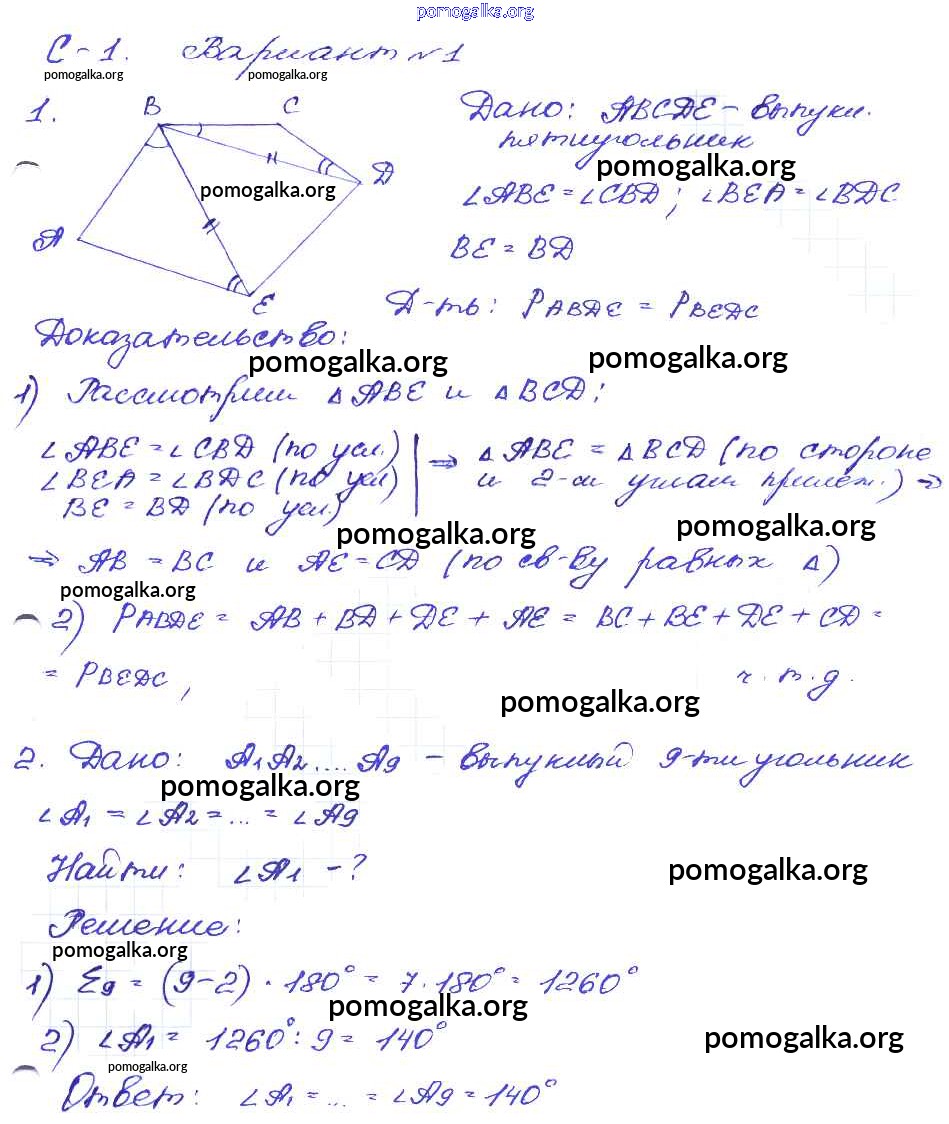 pomogalka.org
С-1. Вариант №1
pomogalka.org pomogalka.org
1.
B C
Д
A
E
pomogalka.org
Дано: ABCДE – выпукл.
пятиугольник
pomogalka.org
∠ABE = ∠CBД ; ∠BEA = ∠BДC
BE = BД
Д-ть: PABДE = PBEДC
Доказательство:
pomogalka.org pomogalka.org
1) Рассмотрим △ABE и △BCД:
∠ABE = ∠CBД (по усл.) | ⇒ △ABE = △BCД (по стороне
∠BEA = ∠BДC (по усл) | и 2-м углам прилеж.) ⇒
BE = BД (по усл.)
pomogalka.org pomogalka.org
⇒ AB = BC и AE = CД (по св-ву равных △)
pomogalka.org
2) PABДE = AB + BД + ДE + AE = BC + BE + ДE + CД =
= PBEДC, ч.т.д.
pomogalka.org
2. Дано: A1A2...A9 – выпуклый 9-ти угольник
pomogalka.org
∠A1 = ∠A2 = ... = ∠A9
Найти: ∠A1 – ?
pomogalka.org
Решение:
pomogalka.org
1) Σ9 = (9-2) · 180° = 7 · 180° = 1260°
pomogalka.org
2) ∠A1 = 1260° : 9 = 140°
pomogalka.org
pomogalka.org
Ответ: ∠A1 = ... = ∠A9 = 140°